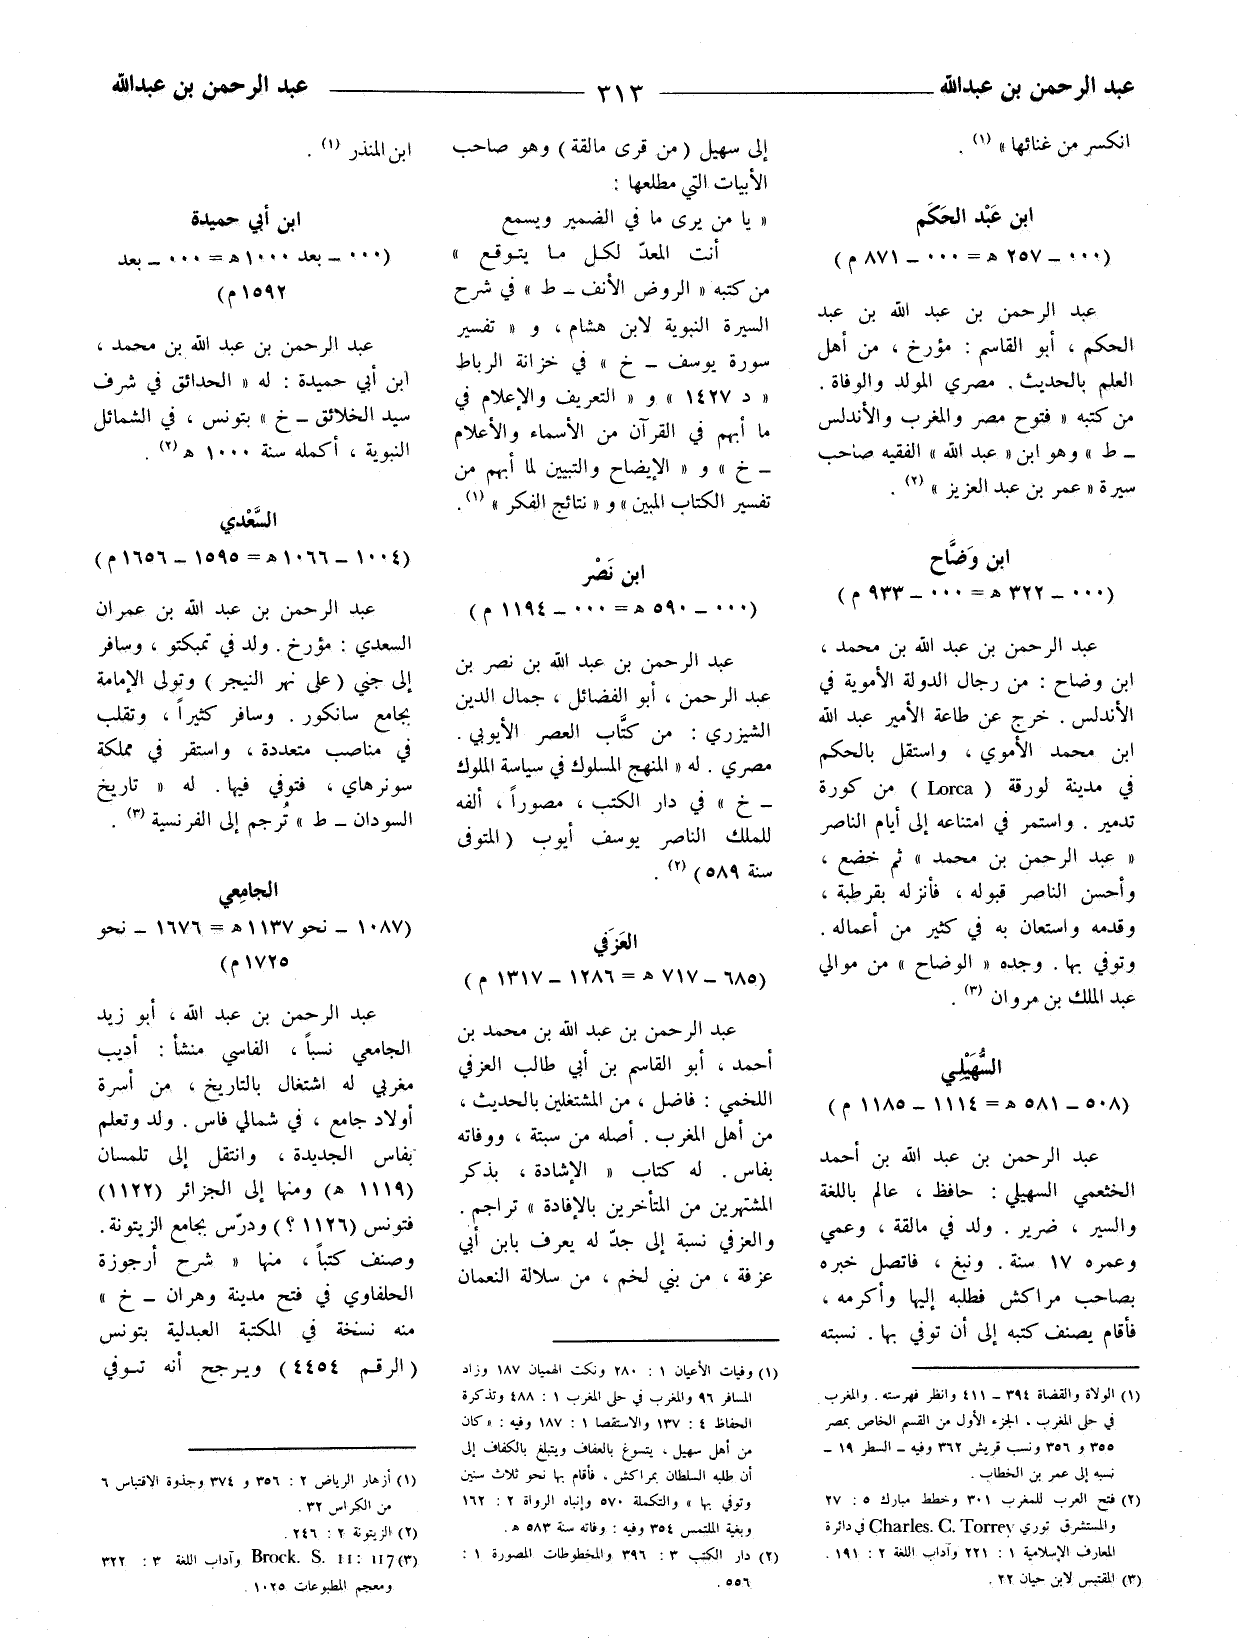 عبد الرحمن بن عبدالله ٣١٣ عبد الرحمن بن عبدالله
انكسر من غنائها » (١) .
ابن عَبْد الحَكَم
(٠٠٠ ـ ٢٥٧ هـ = ٠٠٠ ـ ٨٧١ م)
عبد الرحمن بن عبد الله بن عبد
الحكم ، أبو القاسم : مؤرخ ، من أهل
العلم بالحديث . مصري المولد والوفاة .
من كتبه « فتوح مصر والمغرب والأندلس
ـ ط » وهو ابن « عبد الله » الفقيه صاحب
سيرة « عمر بن عبد العزيز » (٢) .
ابن وَضَّاح
(٠٠٠ ـ ٣٢٢ هـ = ٠٠٠ ـ ٩٣٣ م)
عبد الرحمن بن عبد الله بن محمد ،
ابن وضاح : من رجال الدولة الأموية في
الأندلس . خرج عن طاعة الأمير عبد الله
ابن محمد الأموي ، واستقل بالحكم
في مدينة لورقة ( Lorca ) من كورة
تدمير . واستمر في امتناعه إلى أيام الناصر
« عبد الرحمن بن محمد » ثم خضع ،
وأحسن الناصر قبوله ، فأنزله بقرطبة ،
وقدمه واستعان به في كثير من أعماله .
وتوفي بها . وجده « الوضاح » من موالي
عبد الملك بن مروان (٣) .
السُّهَيْلي
(٥٠٨ ـ ٥٨١ هـ = ١١١٤ ـ ١١٨٥ م)
عبد الرحمن بن عبد الله بن أحمد
الخثعمي السهيلي : حافظ ، عالم باللغة
والسير ، ضرير . ولد في مالقة ، وعمي
وعمره ١٧ سنة . ونبغ ، فاتصل خبره
بصاحب مراكش فطلبه إليها وأكرمه ،
فأقام يصنف كتبه إلى أن توفي بها . نسبته
(١) الولاة والقضاة ٣٩٤ ـ ٤١١ وانظر فهرسته . والمغرب
في حلى المغرب ، الجزء الأول من القسم الخاص بمصر
٣٥٥ و ٣٥٦ ونسب قريش ٣٦٢ وفيه ـ السطر ١٩ ـ
نسبه إلى عمر بن الخطاب .
(٢) فتح العرب للمغرب ٣٠١ وخطط مبارك ٥ : ٢٧
والمستشرق توري Charles. C. Torrey في دائرة
المعارف الإسلامية ١ : ٢٢١ وآداب اللغة ٢ : ١٩١ .
(٣) المقتبس لابن حيان ٢٢ .
إلى سهيل ( من قرى مالقة ) وهو صاحب
الأبيات التي مطلعها :
« يا من يرى ما في الضمير ويسمع
أنت المعدّ لكل ما يتوقع »
من كتبه « الروض الأنف ـ ط » في شرح
السيرة النبوية لابن هشام ، و « تفسير
سورة يوسف ـ خ » في خزانة الرباط
« د ١٤٢٧ » و « التعريف والإعلام في
ما أبهم في القرآن من الأسماء والأعلام
ـ خ » و « الإيضاح والتبيين لما أبهم من
تفسير الكتاب المبين » و « نتائج الفكر » (١) .
ابن نَصْر
(٠٠٠ ـ ٥٩٠ هـ = ٠٠٠ ـ ١١٩٤ م)
عبد الرحمن بن عبد الله بن نصر بن
عبد الرحمن ، أبو الفضائل ، جمال الدين
الشيزري : من كتَّاب العصر الأيوبي .
مصري . له « المنهج المسلوك في سياسة الملوك
ـ خ » في دار الكتب ، مصوراً ، ألفه
للملك الناصر يوسف أيوب ( المتوفى
سنة ٥٨٩ ) (٢) .
العَزَفي
(٦٨٥ ـ ٧١٧ هـ = ١٢٨٦ ـ ١٣١٧ م)
عبد الرحمن بن عبد الله بن محمد بن
أحمد ، أبو القاسم بن أبي طالب العزفي
اللخمي : فاضل ، من المشتغلين بالحديث ،
من أهل المغرب . أصله من سبتة ، ووفاته
بفاس . له كتاب « الإشادة ، بذكر
المشتهرين من المتأخرين بالإفادة » تراجم .
والعزفي نسبة إلى جدّ له يعرف بابن أبي
عزفة ، من بني لخم ، من سلالة النعمان
(١) وفيات الأعيان ١ : ٢٨٠ ونكت الهميان ١٨٧ وزاد
المسافر ٩٦ والمغرب في حلى المغرب ١ : ٤٨٨ وتذكرة
الحفاظ ٤ : ١٣٧ والاستقصا ١ : ١٨٧ وفيه : « كان
من أهل سهيل ، يتسوغ بالعفاف ويتبلغ بالكفاف إلى
أن طلبه السلطان بمراكش ، فأقام بها نحو ثلاث سنين
وتوفي بها » والتكملة ٥٧٠ وإنباه الرواة ٢ : ١٦٢
وبغية الملتمس ٣٥٤ وفيه : وفاته سنة ٥٨٣ هـ .
(٢) دار الكتب ٣ : ٣٩٦ والمخطوطات المصورة ١ :
٥٥٦ .
ابن المنذر (١) .
ابن أبي حميدة
(٠٠٠ ـ بعد ١٠٠٠ هـ = ٠٠٠ ـ بعد
١٥٩٢ م)
عبد الرحمن بن عبد الله بن محمد ،
ابن أبي حميدة : له « الحدائق في شرف
سيد الخلائق ـ خ » بتونس ، في الشمائل
النبوية ، أكمله سنة ١٠٠٠ هـ (٢) .
السَّعْدي
(١٠٠٤ ـ ١٠٦٦ هـ = ١٥٩٥ ـ ١٦٥٦ م)
عبد الرحمن بن عبد الله بن عمران
السعدي : مؤرخ . ولد في تمبكتو ، وسافر
إلى جني ( على نهر النيجر ) وتولى الإمامة
بجامع سانكور . وسافر كثيراً ، وتقلب
في مناصب متعددة ، واستقر في مملكة
سونرهاي ، فتوفي فيها . له « تاريخ
السودان ـ ط » تُرجم إلى الفرنسية (٣) .
الجامِعي
(١٠٨٧ ـ نحو ١١٣٧ هـ = ١٦٧٦ ـ نحو
١٧٢٥ م)
عبد الرحمن بن عبد الله ، أبو زيد
الجامعي نسباً ، الفاسي منشأ : أديب
مغربي له اشتغال بالتاريخ ، من أسرة
أولاد جامع ، في شمالي فاس . ولد وتعلم
بفاس الجديدة ، وانتقل إلى تلمسان
(١١١٩ هـ) ومنها إلى الجزائر (١١٢٢)
فتونس (١١٢٦ ؟) ودرّس بجامع الزيتونة .
وصنف كتباً ، منها « شرح أرجوزة
الحلفاوي في فتح مدينة وهران ـ خ »
منه نسخة في المكتبة العبدلية بتونس
( الرقم ٤٤٥٤ ) ويرجح أنه توفي
(١) أزهار الرياض ٢ : ٣٥٦ و ٣٧٤ وجذوة الاقتباس ٦
من الكراس ٣٢ .
(٢) الزيتونة ٢ : ٢٤٦ .
(٣) Brock. S. II: 117 وآداب اللغة ٣ : ٣٢٢
ومعجم المطبوعات ١٠٢٥ .